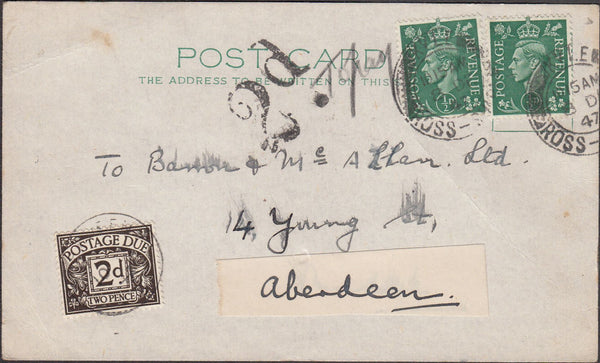 POST CARD
THE ADDRESS TO BE WRITTEN ON THIS
2d
POSTAGE REVENUE
½D
POSTAGE REVENUE
5AM
D
47
ROSS-
ROSS-
To Barron & Mc Allan. Ltd.
14, Young St,
Aberdeen.
POSTAGE DUE
2d.
TWO PENCE